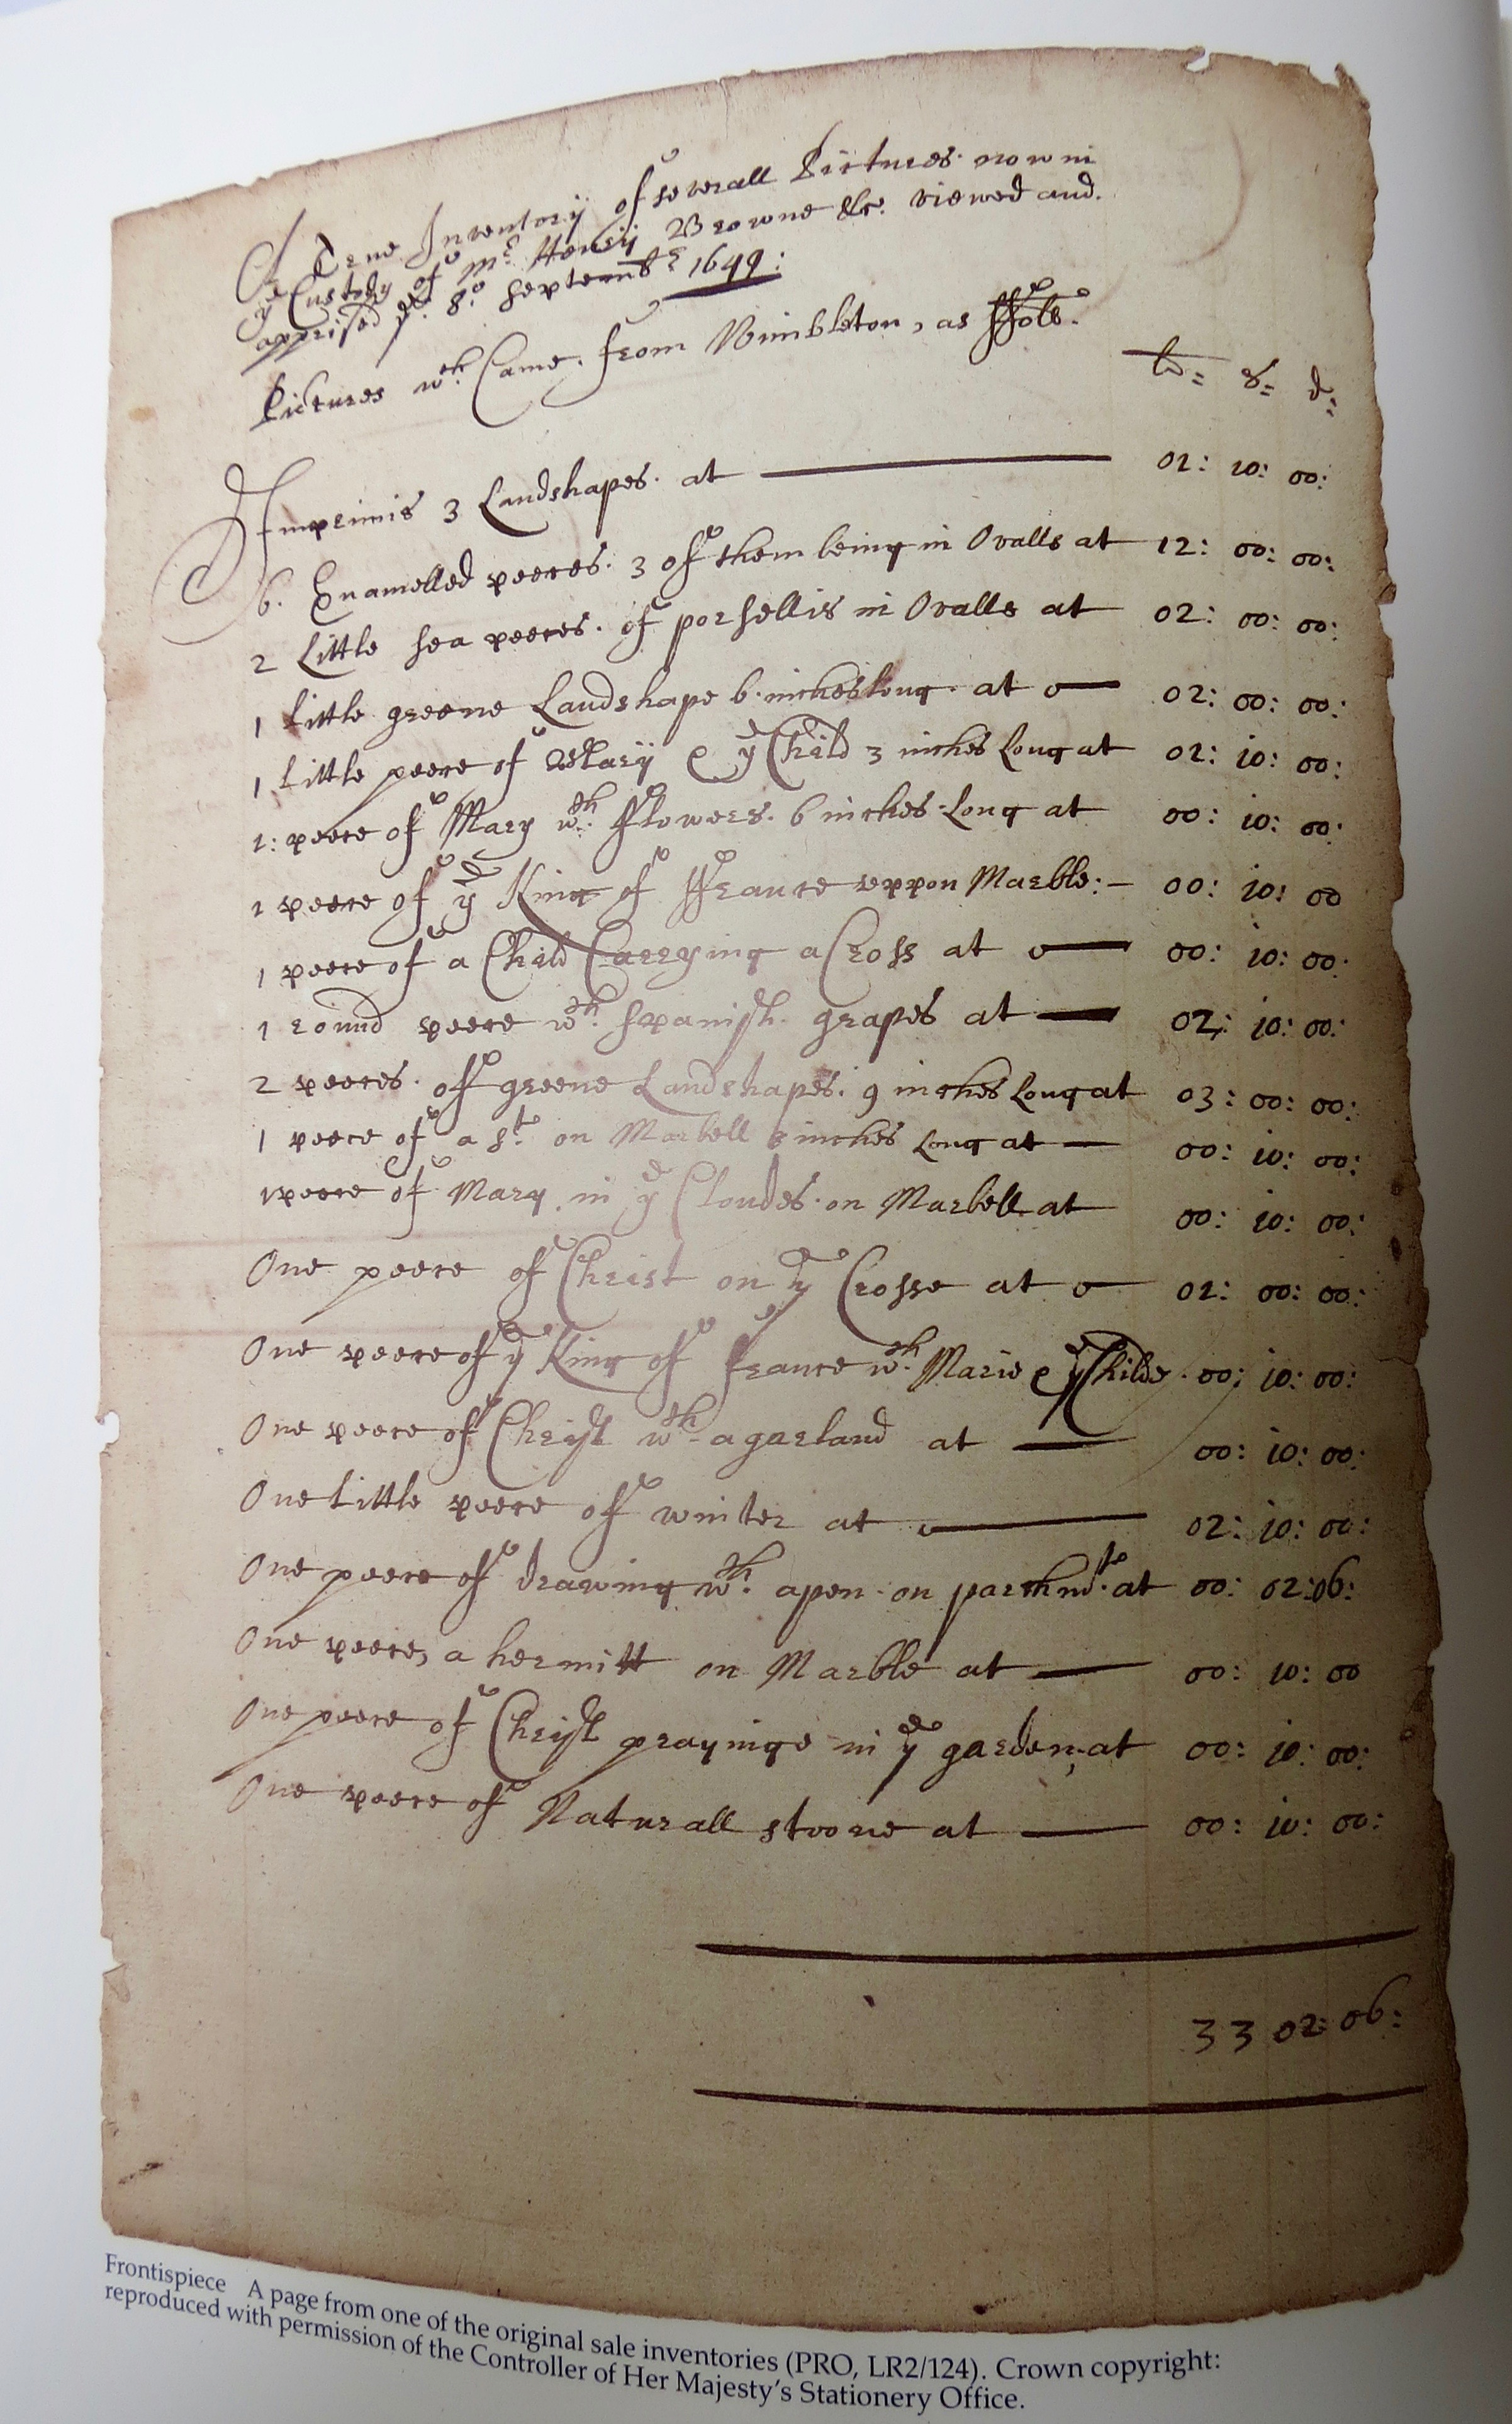 A True Inventory of severall Pictures now in
ye Custody of Mr Henry Browne &c. viewed and
apprised ye 8o Septembr 1649:
Pictures wch Came from Wimbleton, as ffolls.
ls= s= d=
Imprimis 3 Landshapes. at 02: 10: 00:
6. Enamelled peeces. 3 of them being in Ovalls at 12: 00: 00:
2 Little sea peeces. of porsellis in Ovalls at 02: 00: 00:
1 Little greene Landshape 6. inches long. at 02: 00: 00:
1 Little peece of Mary & ye Child 3 inches Long at 02: 10: 00:
1: peece of Mary wth fflowers. 6 inches Long at 00: 10: 00:
1 peece of ye King of ffrance uppon Marble: 00: 10: 00
1 peece of a Child Carrying a Cross at 00: 10: 00:
1 round peece wth spanish grapes at 02: 10: 00:
2 peeces. of greene Landshapes. 9 inches Long at 03: 00: 00:
1 peece of a St on Marbell inches Long at 00: 10: 00:
1 peece of Mary in ye Cloudes. on Marbell at 00: 10: 00:
One peece of Christ on ye Crosse at 02: 00: 00:
One peece of ye King of france wth Marie & ye Childe. 00: 10: 00:
One peece of Christ wth a garland at 00: 10: 00:
One Little peece of winter at 02: 10: 00:
One peece of drawing wth a pen on parchmt. at 00: 02: 06:
One peece, a hermitt on Marble at 00: 10: 00
One peece of Christ prayinge in ye garden, at 00: 10: 00:
One peece of Naturall stoone at 00: 10: 00:
33 02: 06:
Frontispiece A page from one of the original sale inventories (PRO, LR2/124). Crown copyright:
reproduced with permission of the Controller of Her Majesty's Stationery Office.